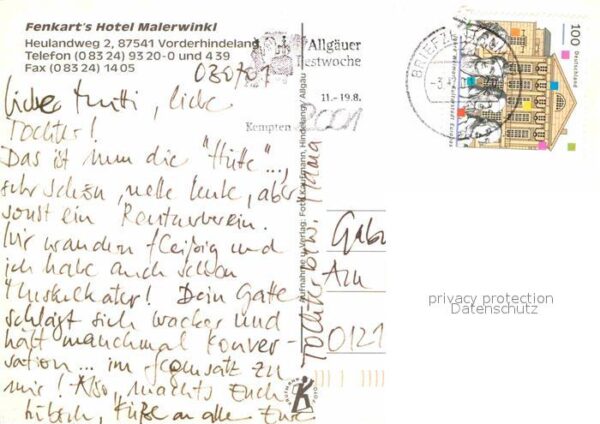 Fenkart's Hotel Malerwinkl
Heulandweg 2, 87541 Vorderhindelang
Telefon (0 83 24) 93 20-0 und 4 39
Fax (0 83 24) 14 05
030701
Liebe Mutti, liebe
Tochter!
Das ist nun die "Hütte"...,
sehr schön, nette Leute, aber
sonst ein Rentnerverein.
Wir wandern fleißig und
ich habe auch schon
Muskelkater! Dein Gatte
schlägt sich wacker und
hält manchmal Konver-
sation... im Gegensatz zu
mir! Also, machts Euch
hübsch, Küße an alle Eure
Tochter bzw. Mama
Allgäuer
Festwoche
11.-19.8.
Kempten
2001
Aufnahme u. Verlag: Foto Kaufmann, Hindelang/Allgäu
BRIEFZENTRUM
100
Deutschland
Gab
Am
0121
privacy protection
Datenschutz